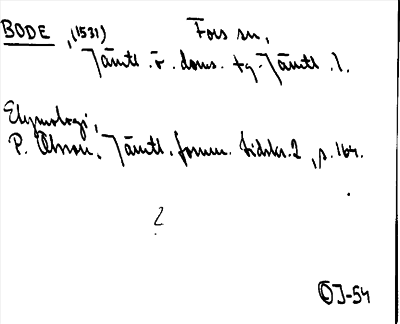 BODE, (1531) Fors sn,
Jämtl. ö. doms. tg. Jämtl. l.
Etymologi,
P. Olsson, Jämtl. fornm. tidskr. 2, s. 164.
?
OJ-54